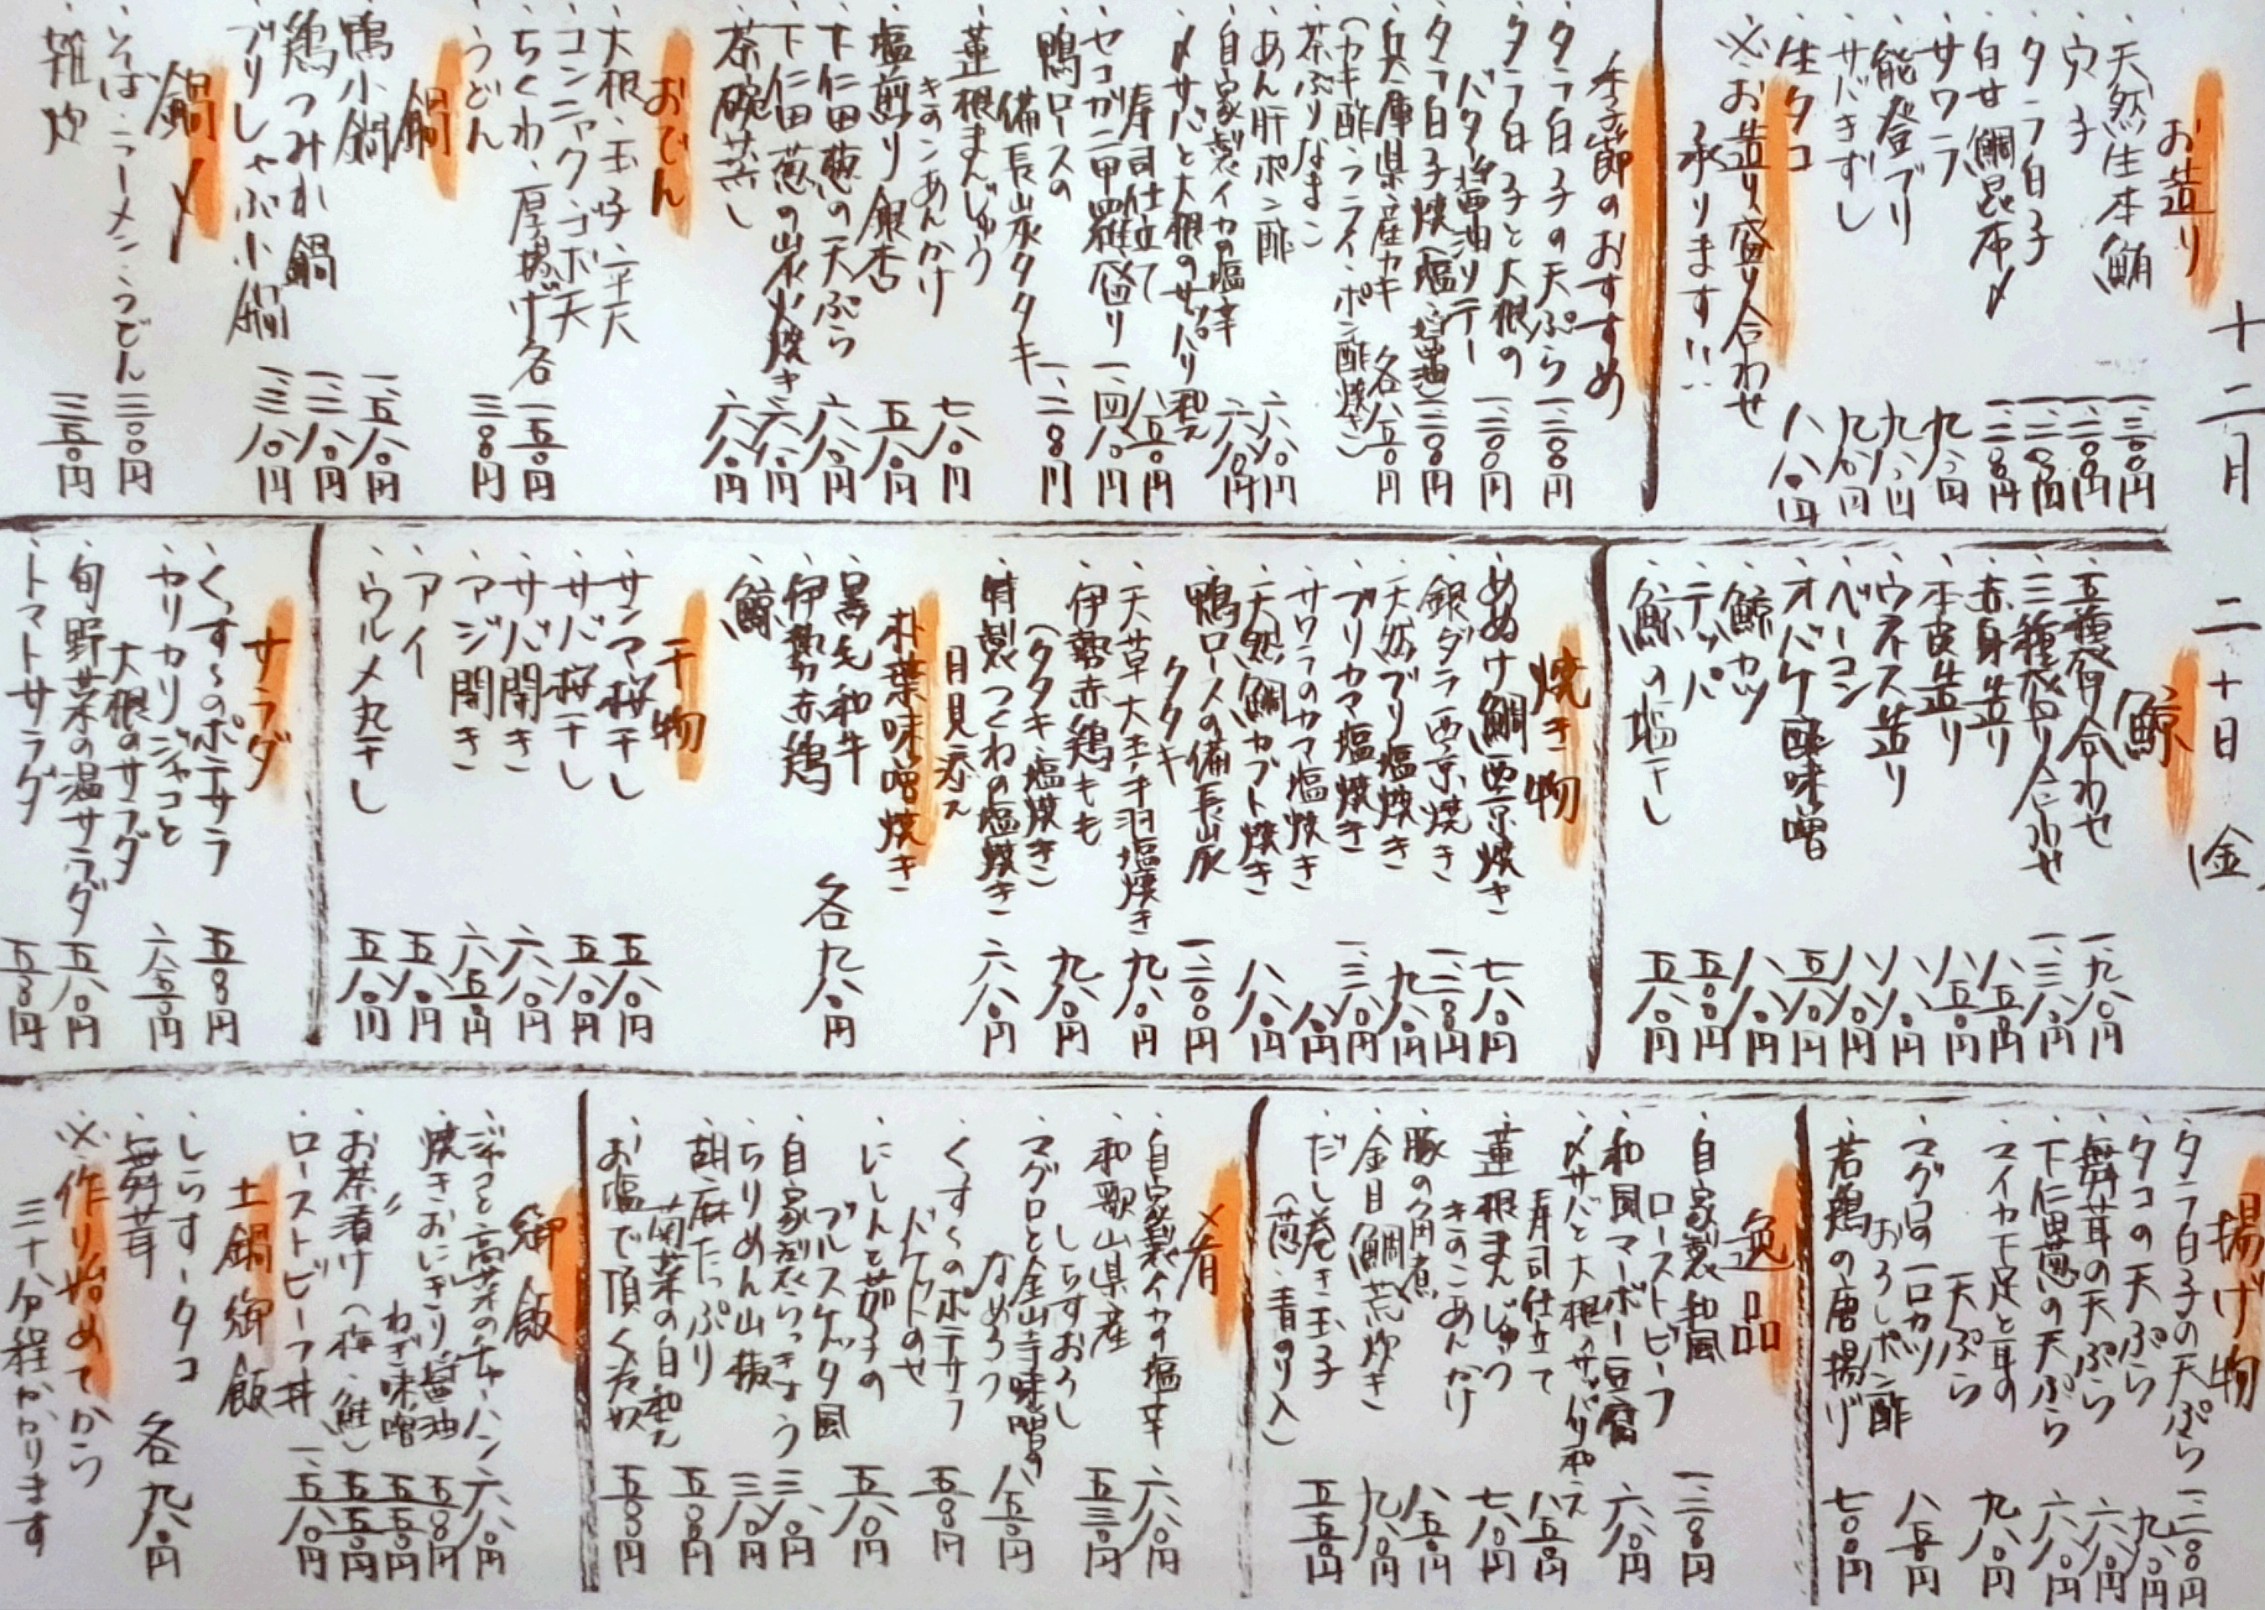 十二月 二十日 金
お造り
・天然生本鮪 一、三〇〇円
・穴子 一、二〇〇円
・タラ白子 一、二〇〇円
・白甘鯛昆布〆 一、二〇〇円
・サワラ 九八〇円
・能登ブリ 九八〇円
・サバきずし 九八〇円
・生タコ 八八〇円
※お造り盛り合わせ
承ります!!
季節のおすすめ
・タラ白子の天ぷら 一、三〇〇円
・タラ白子と大根の
バター醤油ソテー 一、三〇〇円
・タラ白子焼(塩・醤油) 一、三〇〇円
・兵庫県産カキ 各八五〇円
(カキ酢・フライ・ポン酢焼き)
・茶ぶりなまこ
・あん肝ポン酢 六八〇円
・自家製イカの塩辛 六八〇円
・〆サバと大根のサッパリ和え
寿司仕立て 八五〇円
・セコガニ甲羅盛り 一、四八〇円
・鴨ロースの
備長炭タタキ 一、二〇〇円
・蓮根まんじゅう
きのこあんかけ 七八〇円
・塩煎り銀杏 五八〇円
・下仁田葱の天ぷら 六八〇円
・下仁田葱の炭火焼き 六八〇円
・茶碗蒸し 六八〇円
おでん
・大根・玉子・平天
・コンニャク・ゴボ天
・ちくわ・厚揚げ 各二五〇円
・うどん 三〇〇円
鍋
・鴨小鍋 一、五八〇円
・鶏つみれ鍋 一、二八〇円
・ブリしゃぶ小鍋 一、三八〇円
鍋〆
・そば・ラーメン・うどん 三〇〇円
・雑炊 三五〇円
鯨
・五種盛り合わせ 一、九八〇円
・三種盛り合わせ 一、三八〇円
・赤身造り 八五〇円
・本皮造り 八五〇円
・ウネス造り 八八〇円
・ベーコン 八八〇円
・オバケ酢味噌 五八〇円
・鯨カツ 八八〇円
・テッパ 五〇〇円
・鯨の塩干し 五八〇円
焼き物
・めぬけ鯛西京焼き 七八〇円
・銀ダラ西京焼き 一、二八〇円
・天然ブリ塩焼き 九八〇円
・ブリカマ塩焼き 一、三八〇円
・サワラのカマ塩焼き 八八〇円
・天然鯛カブト焼き 八八〇円
・鴨ロースの備長炭
タタキ 一、二〇〇円
・天草大王手羽塩焼き 九八〇円
・伊勢赤鶏もも
(タタキ・塩焼き) 九八〇円
・特製つくねの塩焼き 六八〇円
月見添え
朴葉味噌焼き
・黒毛和牛
・伊勢赤鶏 各九八〇円
・鯨
干物
・サンマ桜干し 五八〇円
・サバ桜干し 五八〇円
・サバ開き 六八〇円
・アジ開き 六五〇円
・アイ 五八〇円
・ウルメ丸干し 五八〇円
サラダ
・くすくすのポテサラ 五〇〇円
・カリカリジャコと
大根のサラダ 六五〇円
・旬野菜の温サラダ 五八〇円
・トマトサラダ 五五〇円
揚げ物
・タラ白子の天ぷら 一、三〇〇円
・タコの天ぷら 九八〇円
・舞茸の天ぷら 六八〇円
・下仁田葱の天ぷら 六八〇円
・マイカ下足と耳の
天ぷら 九八〇円
・マグロの一口カツ
おろしポン酢 八五〇円
・若鶏の唐揚げ 七〇〇円
逸品
・自家製和風
ローストビーフ 一、二八〇円
・和風マーボー豆腐 六八〇円
・〆サバと大根のサッパリ和え
寿司仕立て 八五〇円
・蓮根まんじゅう
きのこあんかけ 七八〇円
・豚の角煮 八五〇円
・金目鯛荒炊き 九八〇円
・だし巻き玉子
(葱・青のり入) 五五〇円
〆肴
・自家製イカの塩辛 六八〇円
・和歌山県産
しらすおろし 五三〇円
・マグロと金山寺味噌の
なめろう 八五〇円
・くすくすのポテサラ
バケットのせ 五〇〇円
・にしんと茄子の
ブルスケッタ風 五八〇円
・自家製らっきょう 三八〇円
・ちりめん山椒 三八〇円
・胡麻たっぷり
菊菜の白和え 五五〇円
・お塩で頂く冷奴 五〇〇円
御飯
・ジャコと高菜のチャーハン 六八〇円
・焼きおにぎり醤油 五〇〇円
〃 ねぎ味噌 五五〇円
・お茶漬け(梅・鮭) 五五〇円
・ローストビーフ丼 一、五八〇円
土鍋御飯
・しらす・タコ
・舞茸 各九八〇円
※作り始めてから
三十分程かかります